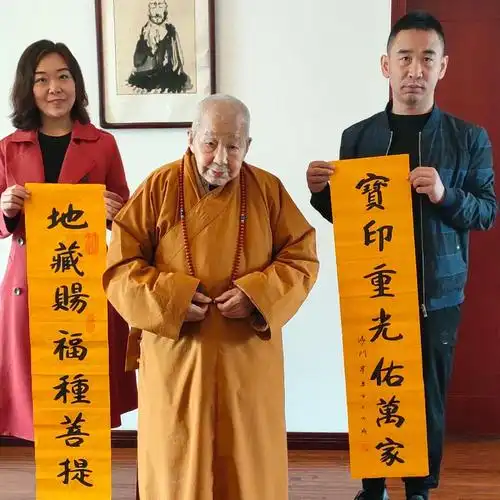 寶印重光佑萬家
地藏賜福種菩提